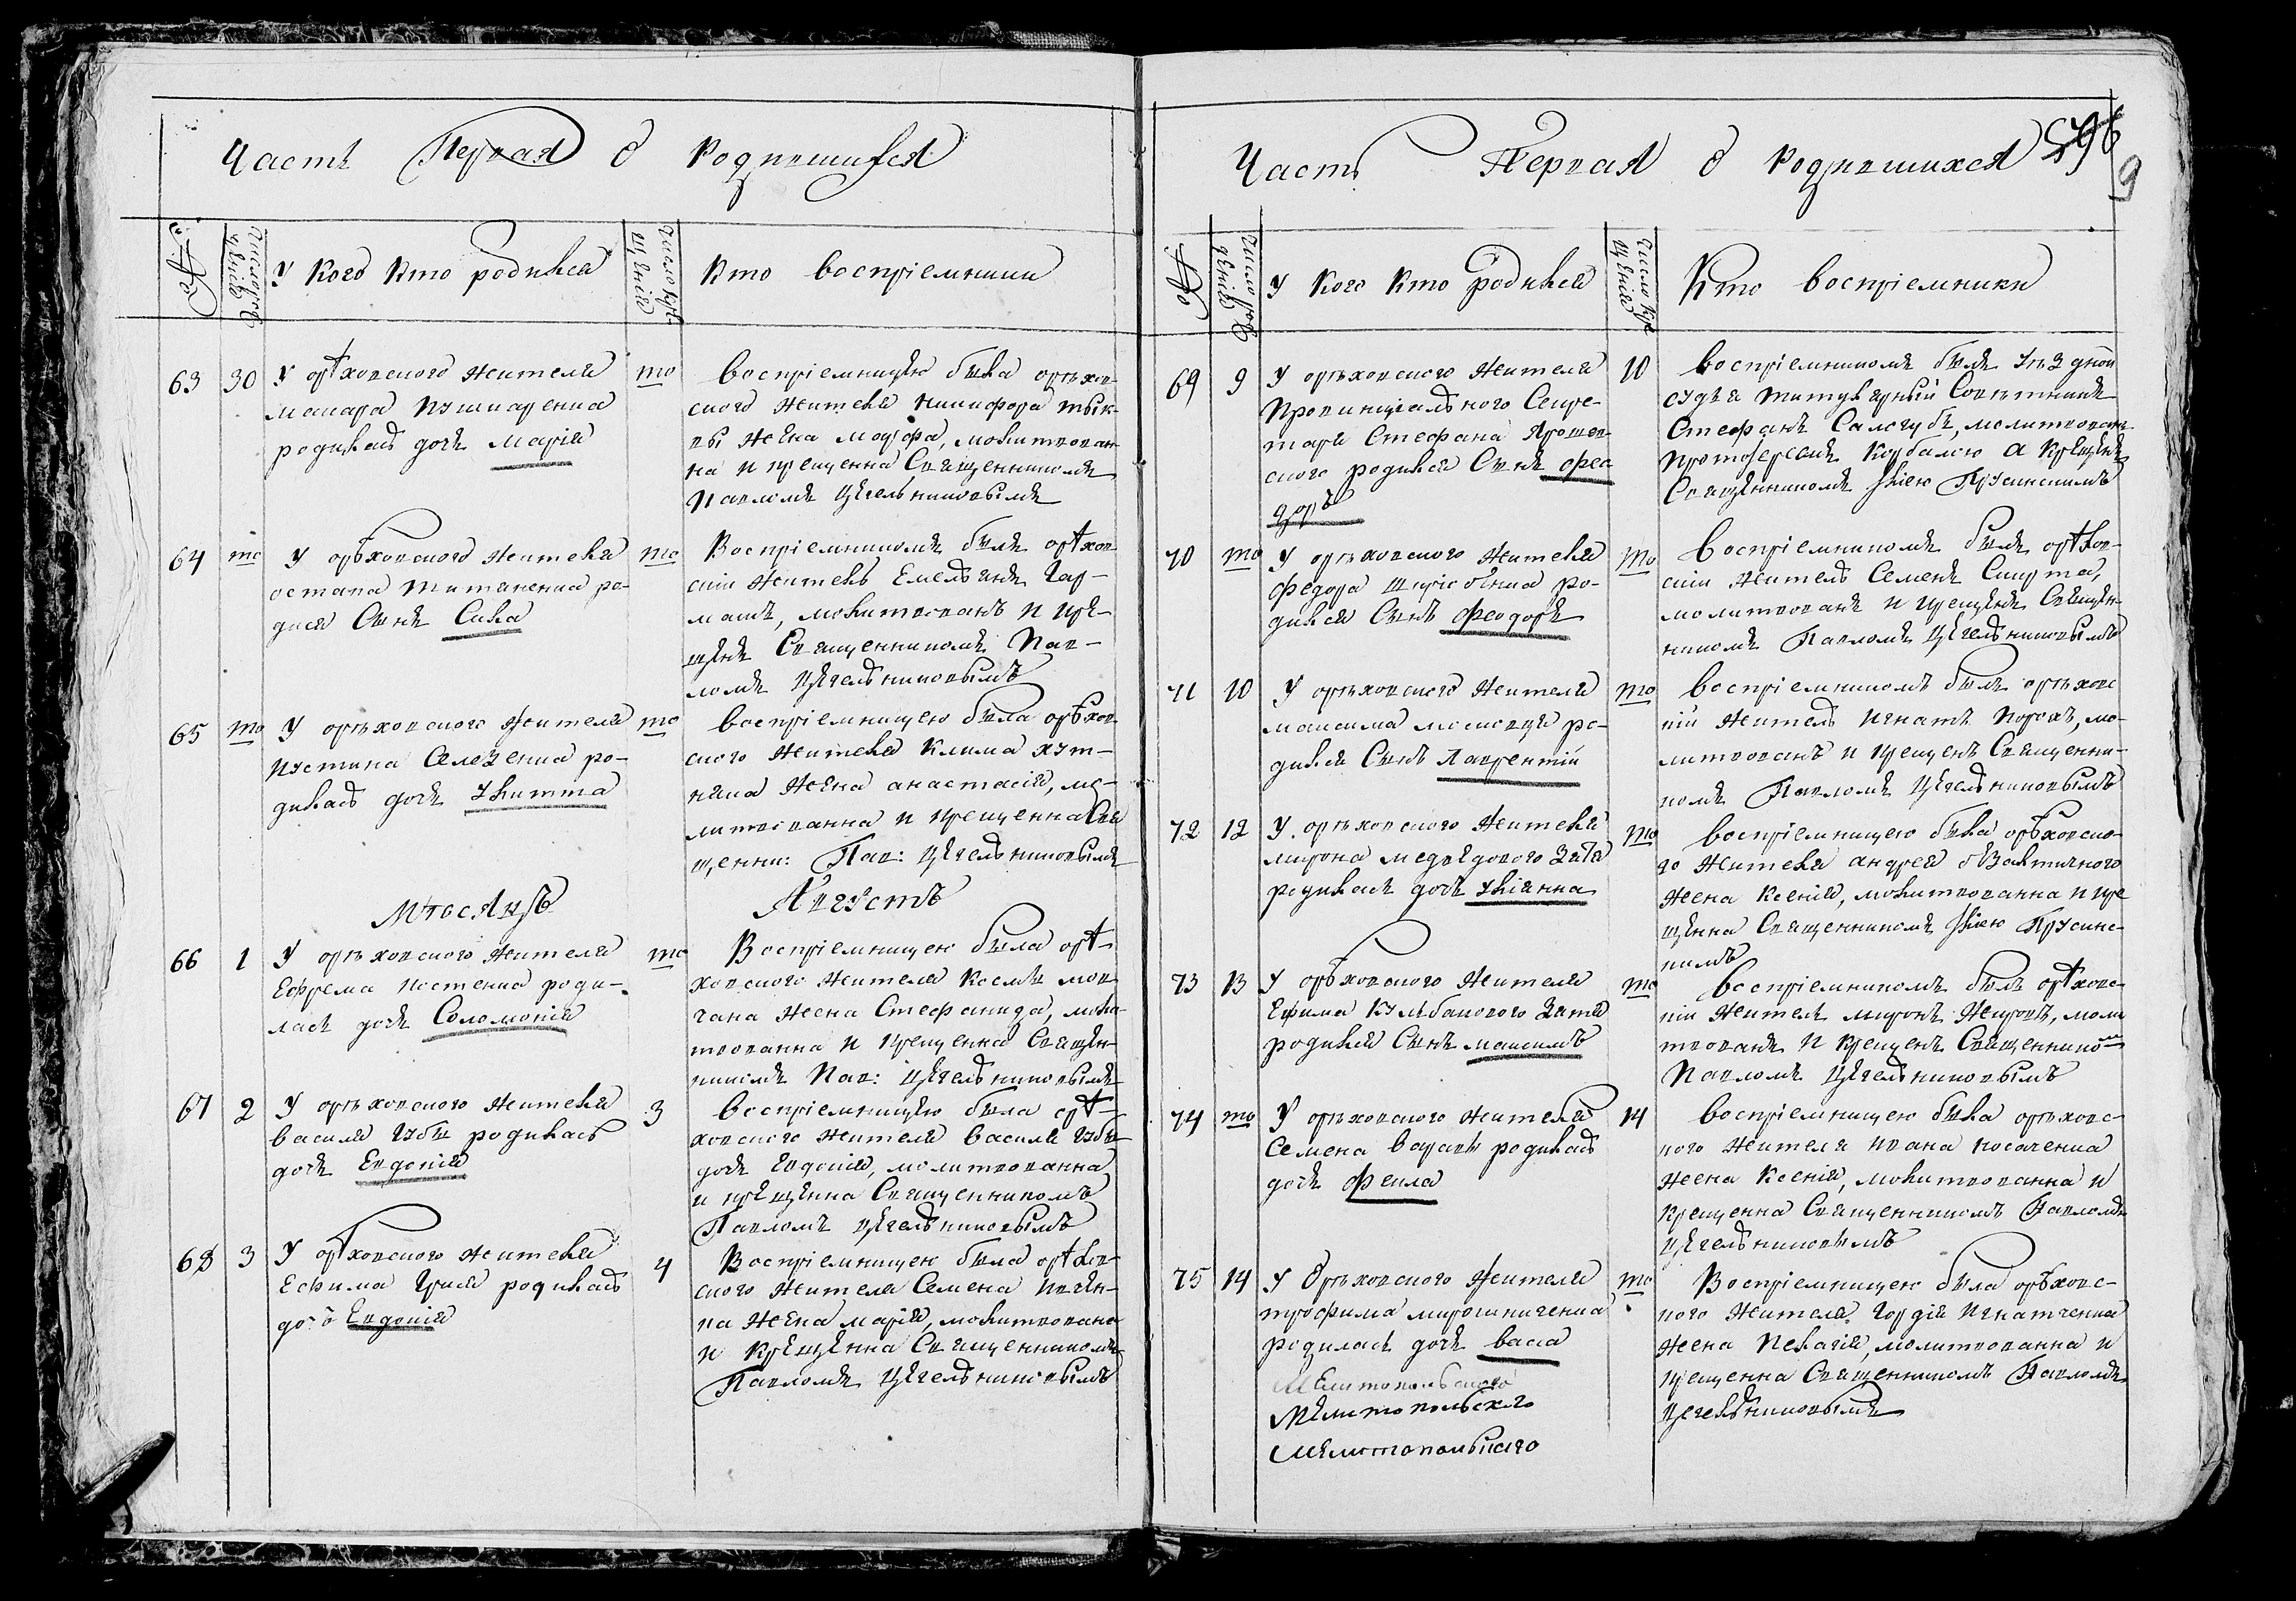 Часть Первая о родившихся
№
число рождения
У кого кто родился
число крещения
кто восприемники
63 30 У орѣховского жителя
макара пушкаренка
родилась дочь Марія
то
восприемницею была орѣхов-
ского жителя никифора тык-
вы жена молитвован-
на и крещенна Священникомъ
Павломъ Цѣгельниковымъ
64 то У орѣховского жителя
остапа титаренка ро-
дися Сынъ Сила
то
Восприемникомъ былъ орѣхов-
скій житель Емельянъ Гар-
машъ, молитвованъ и кре-
щенъ Священникомъ Пав-
ломъ Цѣгельниковымъ
65 то У орѣховского жителя
пустина Селезенка ро-
дилась дочь Улитта
то
восприемницею была орѣхов-
ского жителя клима хут-
жена анастасія, мо-
литвованна и крещенна Свя
щенни: Пав: Цѣгельниковымъ
Мѣсяцъ Августъ
66 1 У орѣховского жителя
Ефрема костенка роди-
лась дочь Соломонія
то
Восприемницею была орѣ-
ховского жителя космы мов-
чана жена Стефанида, моли-
твованна и крещенна Священ-
никомъ Пав: Цѣгельниковымъ
67 2 У орѣховского жителя
василя губы родилась
дочь Евдокія
3
восприемницею была орѣ-
ховского жителя василя губы
дочь Евдокія, молитвованна
и крещенна Священникомъ
Павломъ Цѣгельниковымъ
68 3 У орѣховского жителя
Ефима Гуся родилась
дочь Евдокія
4
Восприемницею была орѣхов-
ского жителя Семена
жена марія, молитвована
и крещенна Священникомъ
Павломъ Цѣгельниковымъ
Часть Первая о родившихся 596
9
№
число рождения
У кого кто родился
число крещения
Кто восприемники
69 9 У орѣховского жителя
Провинциального Секре-
таря Стефана Ярошев-
ского родился Сынъ Фео
доръ
10
восприемникомъ былъ уѣздной
судья титулярный Совѣтникъ
Стефанъ Салогубъ, молитвованъ
протоіереемъ а крещенъ
Священникомъ Іліею Прусинскимъ
70 то У орѣховского жителя
федора ро-
дился Сынъ Феодоръ
то
восприемникомъ былъ орѣхов-
скій житель Семенъ Скирта,
молитвованъ и крещенъ Священ-
никомъ Павломъ Цѣгельниковымъ
71 10 У орѣховского жителя
максима московця ро-
дился Сынъ Лаврентій
то
восприемникомъ былъ орѣховс
кій житель Игнатъ порохъ, мо-
литвованъ и крещенъ Священни-
комъ Павломъ Цѣгельниковымъ
72 12 У орѣховского жителя
мирона медведового Зятя
родилась дочь Уліянна
то
восприемницею была орѣховско-
го жителя андрея
жена ксенія, молитвованна и кре
щенна Священникомъ Іліею Прусинс-
кимъ
73 13 У орѣховского жителя
Ефима кульбакового Зятя
родился Сынъ максимъ
то
восприемникомъ былъ орѣховс-
кій житель миронъ молит
твованъ и крещенъ Священником
Павломъ Цѣгельниковымъ
74 то У орѣховского жителя
Семена родилась
дочь Фекла
14
восприемницею была орѣховс-
кого жителя ивана косаченка
жена ксенія, молитвованна и
крещенна Священникомъ Павломъ
Цѣгельниковымъ
75 14 У Орѣховского жителя
трофима мирошниченка
родилась дочь васса
то
Восприемницею была орѣховс-
кого жителя гордія игнатченка
жена пелагія, молитвованна и
крещенна Священникомъ Павломъ
Цегельниковымъ
Мелитопольского
Мелитопольскаго
Мелитопольскаго